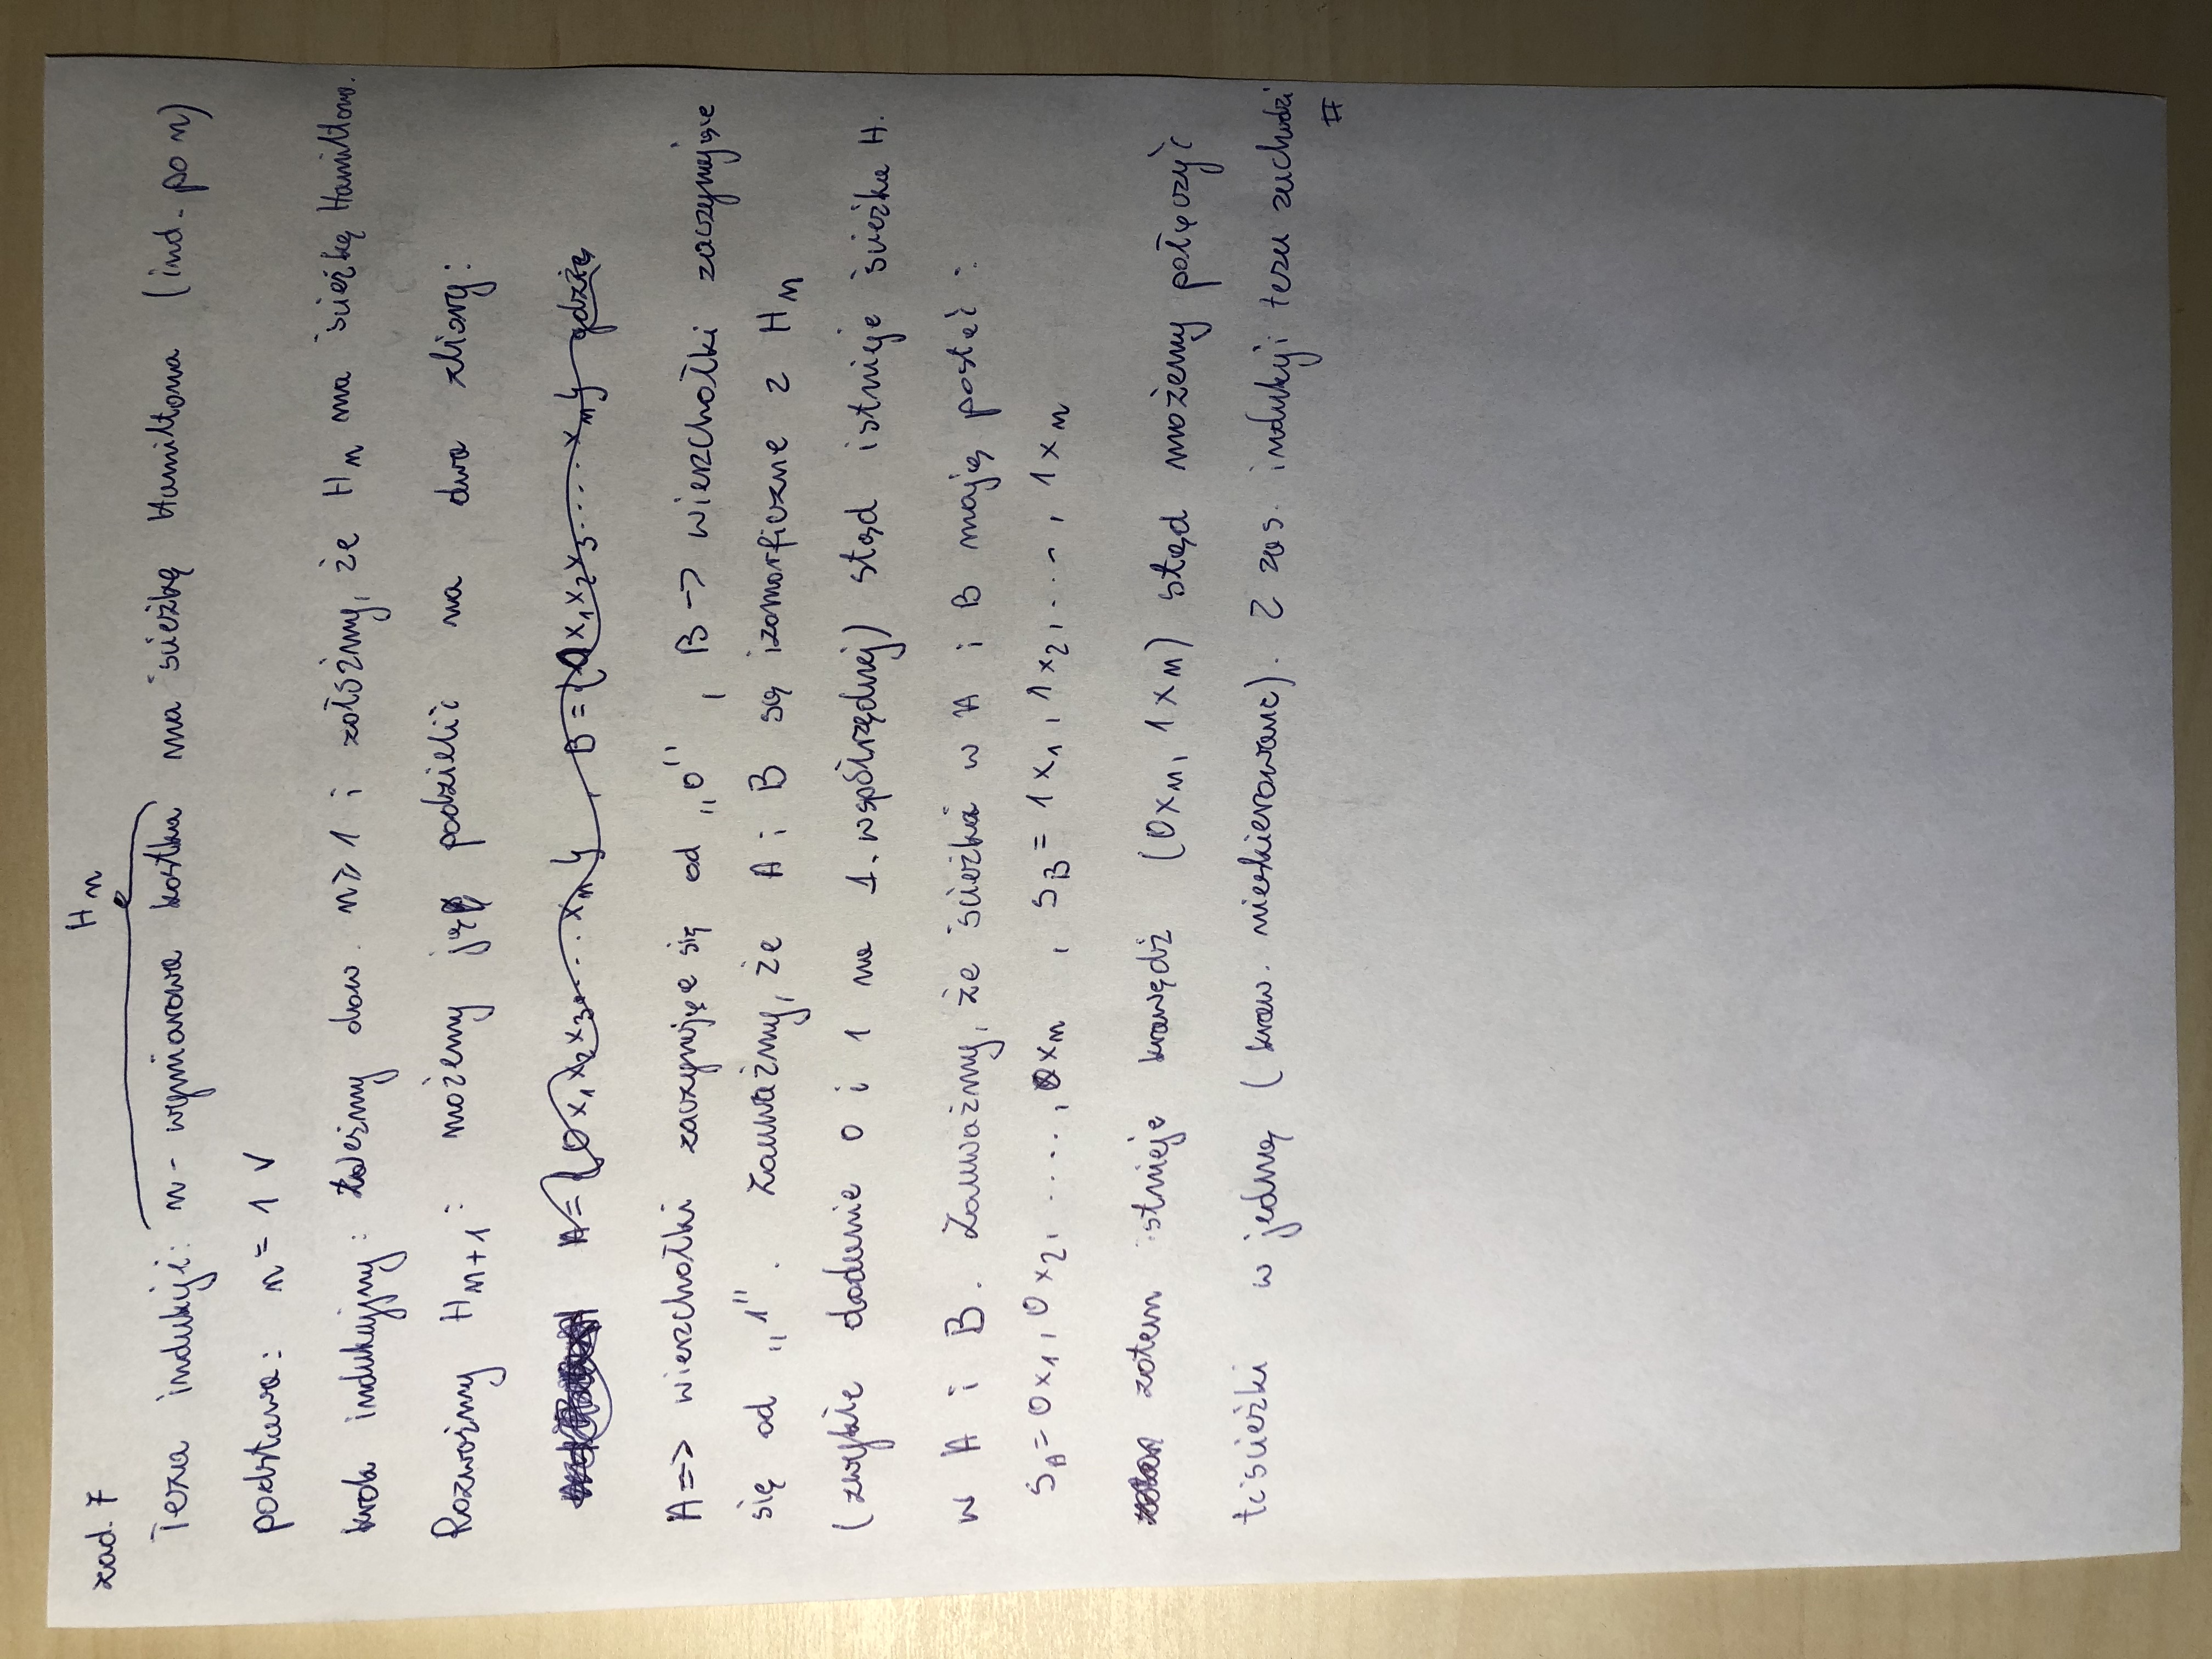 zad. 7
H n
Teza indukcji: n - wymiarowa kostka ma ścieżkę Hamiltona (ind. po n)
podstawa: n = 1 ✓
krok indukcyjny: Weźmy dow. n ≥ 1 i załóżmy, że H n ma ścieżkę Hamiltona.
Rozważmy H n+1 : możemy ją podzielić na dwa zbiory:
A = {0x1x2x3.....xn}, B = {1x1x2x3....xn} gdzie
A => wierzchołki zaczynające się od „0", B -> wierzchołki zaczynające
się od „1". Zauważmy, że A i B są izomorficzne z H n
(zwykłe dodanie 0 i 1 na 1. współrzędnej) stąd istnieje ścieżka H.
w A i B. Zauważmy, że ścieżka w A i B mają postać :
SA = 0x1, 0x2, ...., 0xn , SB = 1x1, 1x2, ..., 1xn
zatem istnieje krawędź (0xn, 1xn) stąd możemy połączyć
te ścieżki w jedną (kraw. nieskierowane). Z zas. indukcji teza zachodzi
#